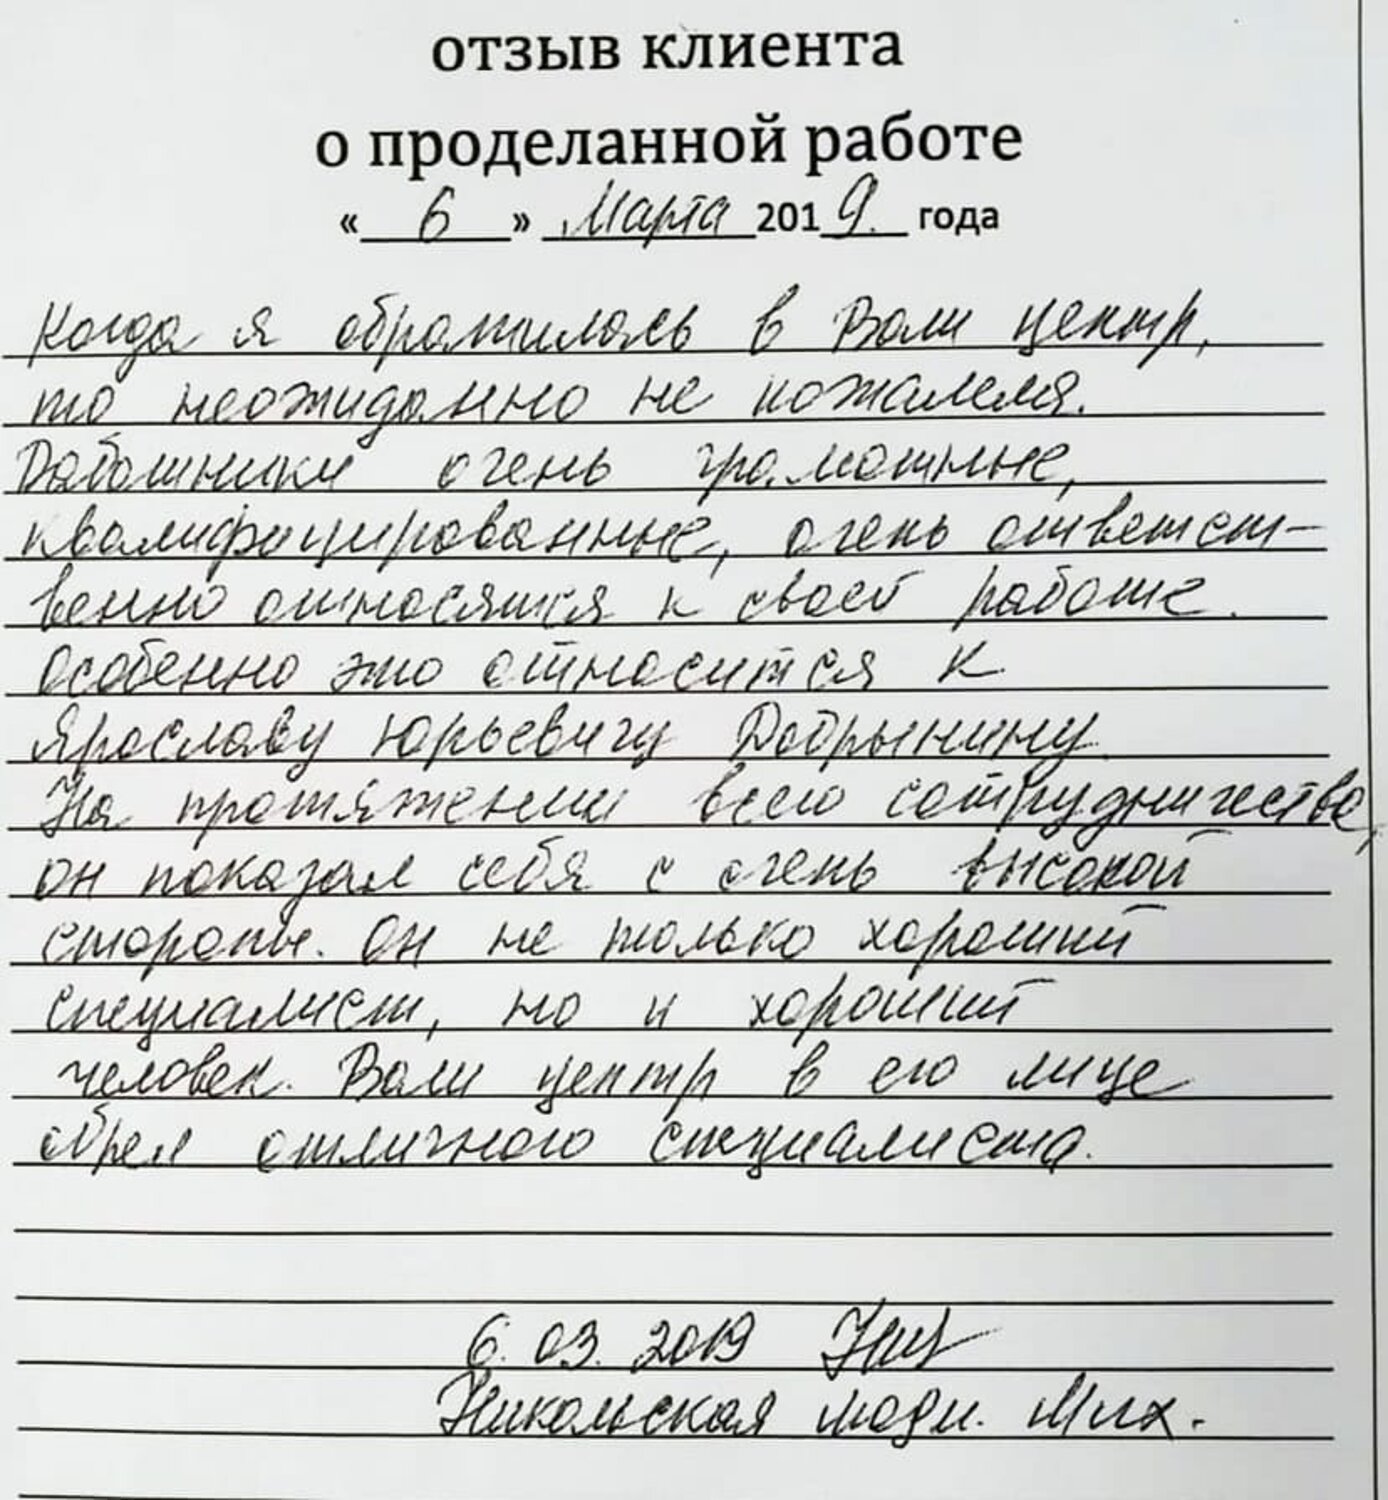 отзыв клиента
о проделанной работе
« 6 » Марта 2019. года
Когда я обратилась в Ваш центр,
то неожиданно не пожалела.
Работники очень грамотные,
квалифицированные, очень ответст-
венно относятся к своей работе.
Особенно это относится к
Ярославу Юрьевичу Добрынину
На протяжении всего сотрудничества,
он показал себя с очень высокой
стороны. Он не только хороший
специалист, но и хороший
человек. Ваш центр в его лице
обрел отличного специалиста.
6. 03. 2019
Никольская Мих.